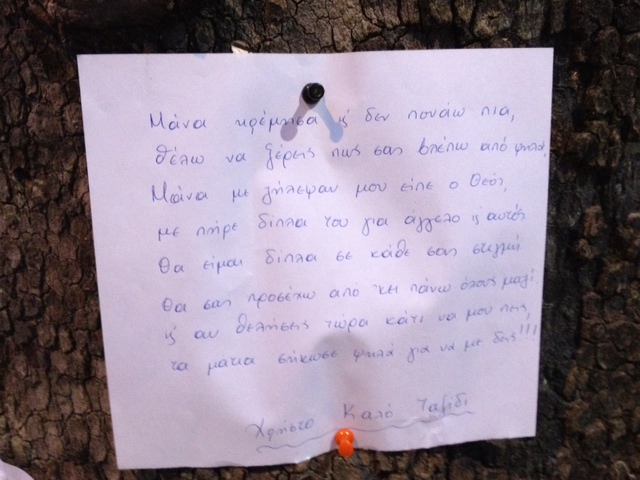 Μάνα ηρέμησα κ' δεν πονάω πια,
θέλω να ξέρεις πως σας βλέπω από ψηλά,
Μάνα με ζήλεψαν μου είπε ο Θεός,
με πήρε δίπλα του για άγγελο κ' αυτός
Θα είμαι δίπλα σε κάθε σας στιγμή
Θα σας προσέχω από 'κει πάνω όλους μαζί.
κ' αν θελήσεις τώρα κάτι να μου πεις,
τα ματια σήκωσε ψηλά για να με δεις!!!
Χρήστο Καλό Ταξίδι